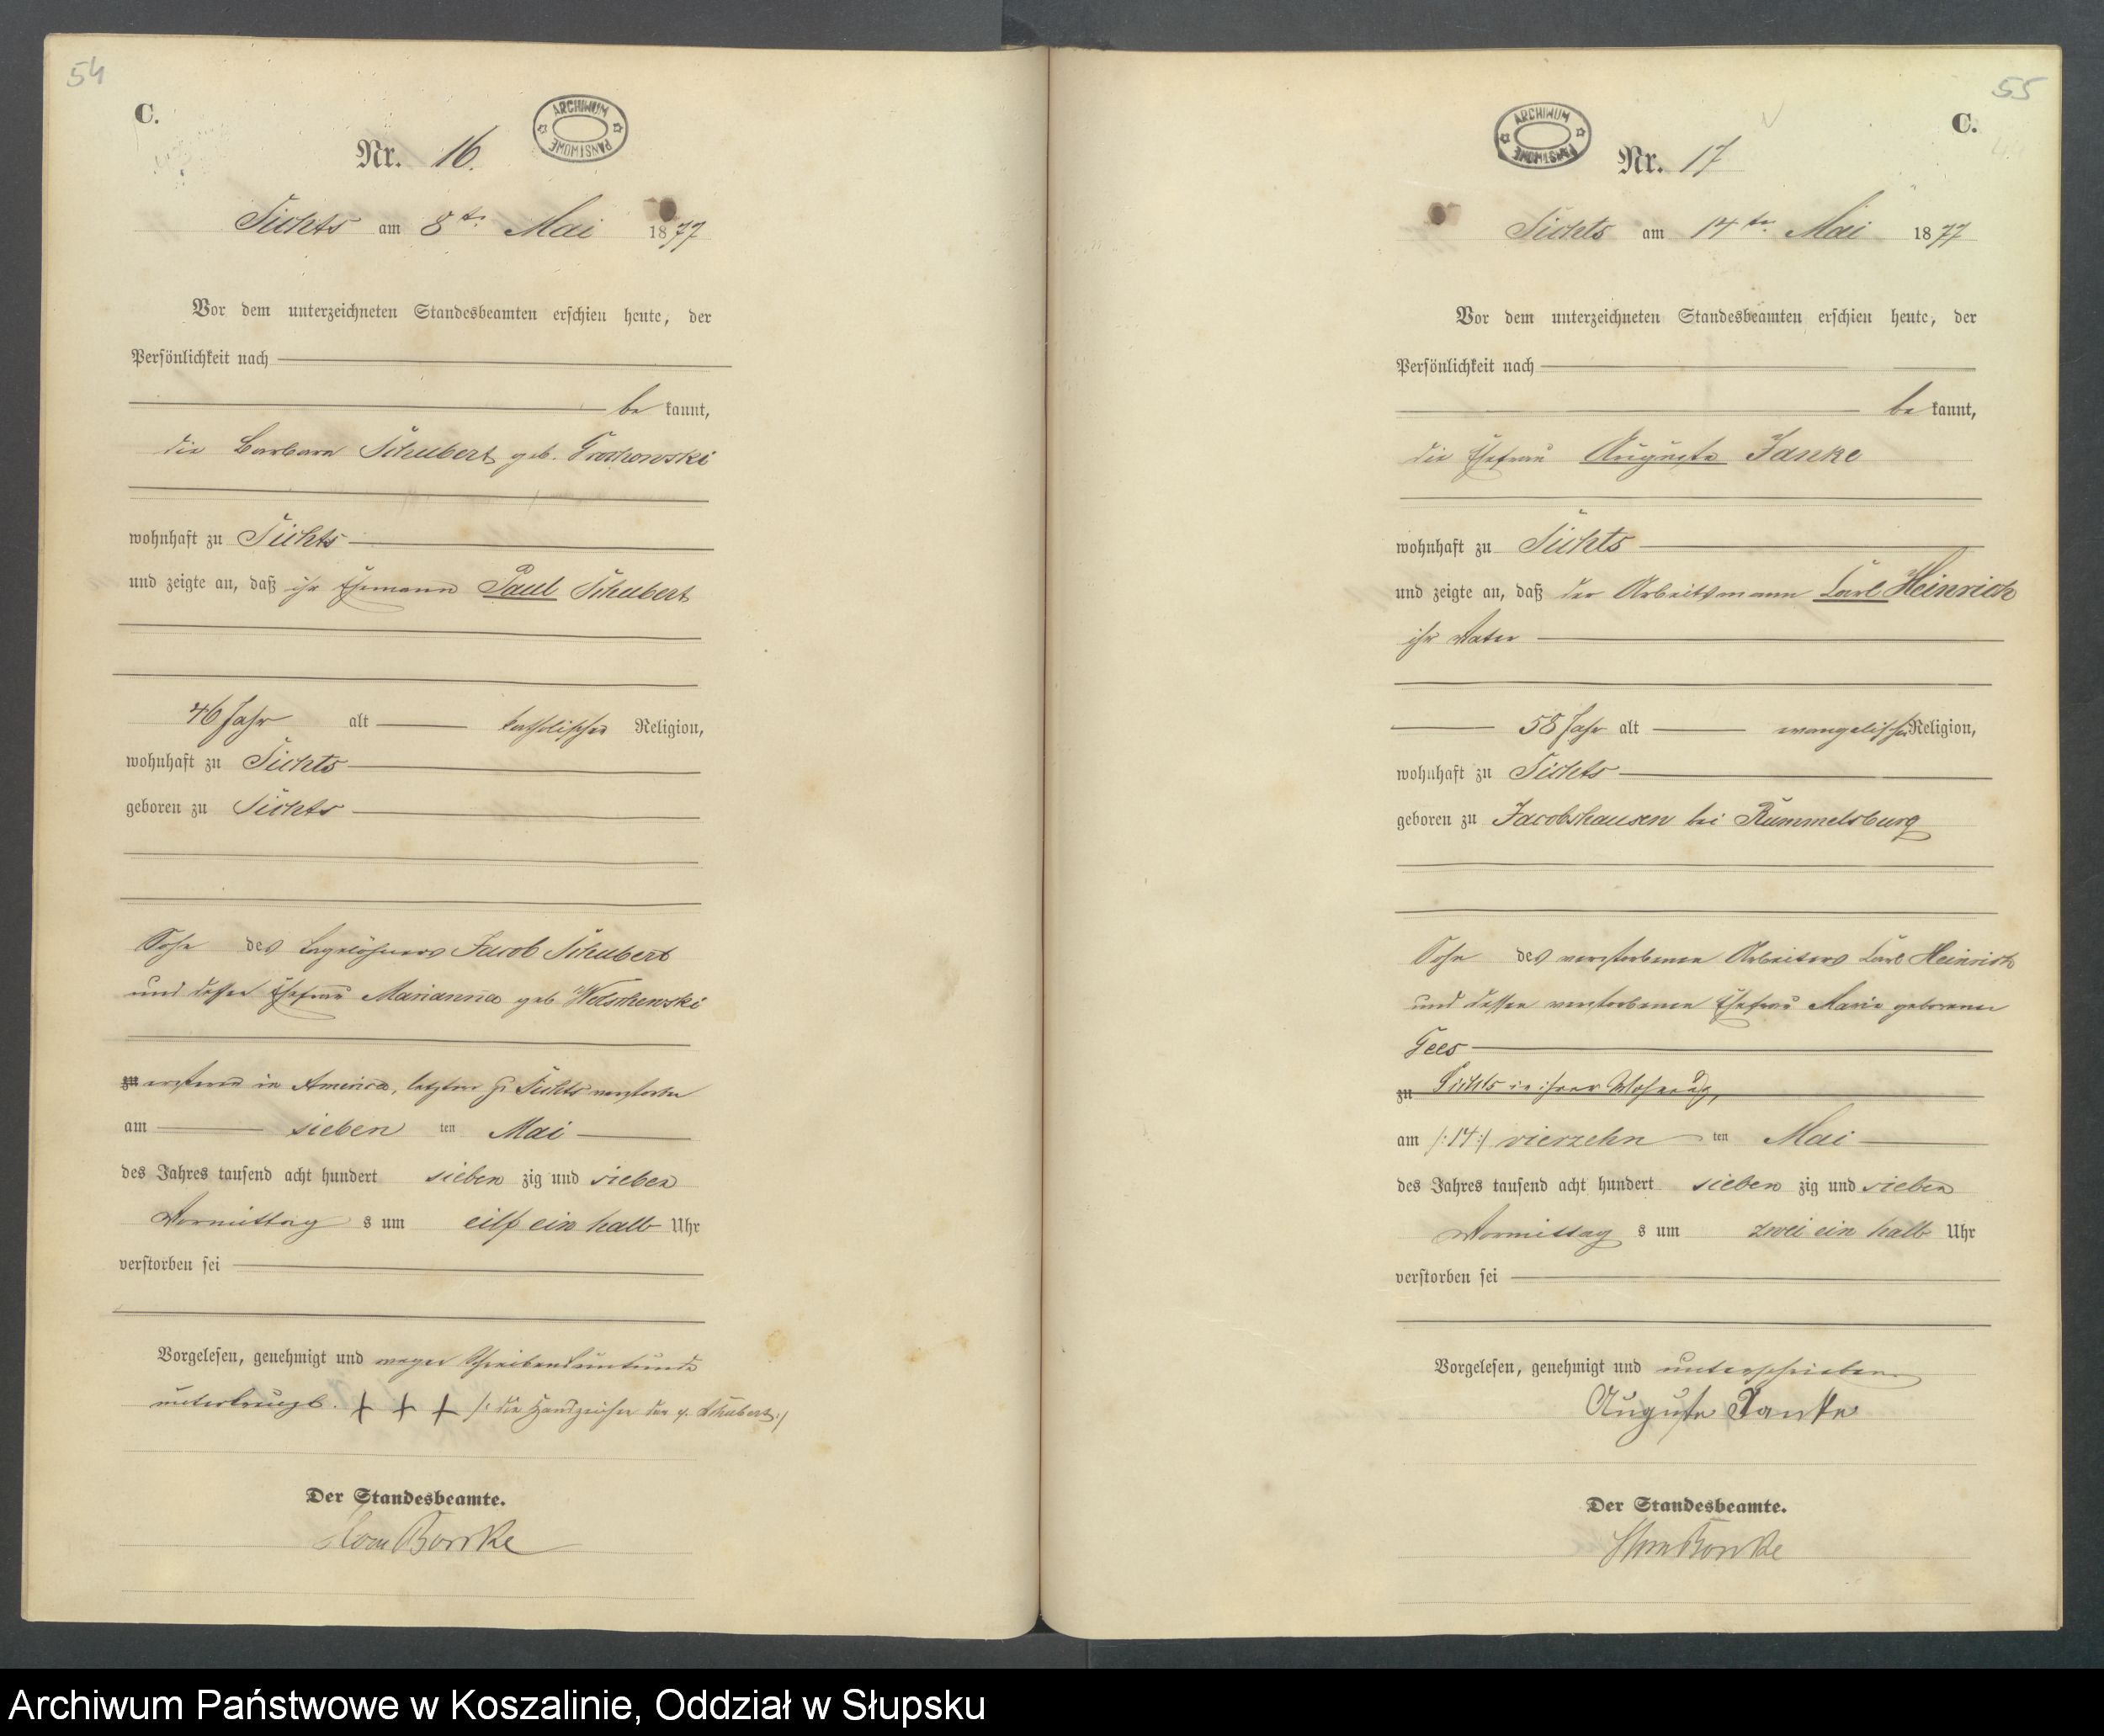 54
C.
ARCHIWUM PAŃSTWOWE
Nr. 16.
Sichts am 8te Mai 1877
Vor dem unterzeichneten Standesbeamten erschien heute, der
Persönlichkeit nach
be kannt,
die Barbara Schubert geb.
wohnhaft zu Sichts
und zeigte an, daß ihr Ehemann Paul Schubert
46 Jahr alt katholischer Religion,
wohnhaft zu Sichts
geboren zu Sichts
Sohn des Tagelöhners Jacob Schubert
und dessen Ehefrau Marianna geb
zu ersterer in America, letztere zu Sichts verstorben
am sieben ten Mai
des Jahres tausend acht hundert sieben zig und sieben
Vormittag s um eilf ein halb Uhr
verstorben sei
Vorgelesen, genehmigt und wegen Schreibensunkunde
unterkreuzt. + + + /: die Handzeichen der p. Schubert :/
Der Standesbeamte.
55
C.
ARCHIWUM PAŃSTWOWE
Nr. 17
Sichts am 14te Mai 1877
Vor dem unterzeichneten Standesbeamten erschien heute, der
Persönlichkeit nach
be kannt,
die Ehefrau Auguste Janke
wohnhaft zu Sichts
und zeigte an, daß der Arbeitsmann Carl Heinrich
ihr Vater
58 Jahr alt evangelischer Religion,
wohnhaft zu Sichts
geboren zu Jacobshausen bei Rummelsburg
Sohn des verstorbenen Arbeiters Carl Heinrich
und dessen verstorbenen Ehefrau Marie geborenen
Gees
zu Sichts in ihrer Wohnung,
am /:14:/ vierzehn ten Mai
des Jahres tausend acht hundert sieben zig und sieben
Vormittag s um zwei ein halb Uhr
verstorben sei
Vorgelesen, genehmigt und unterschrieben
Auguste Janke
Der Standesbeamte.
Archiwum Państwowe w Koszalinie, Oddział w Słupsku